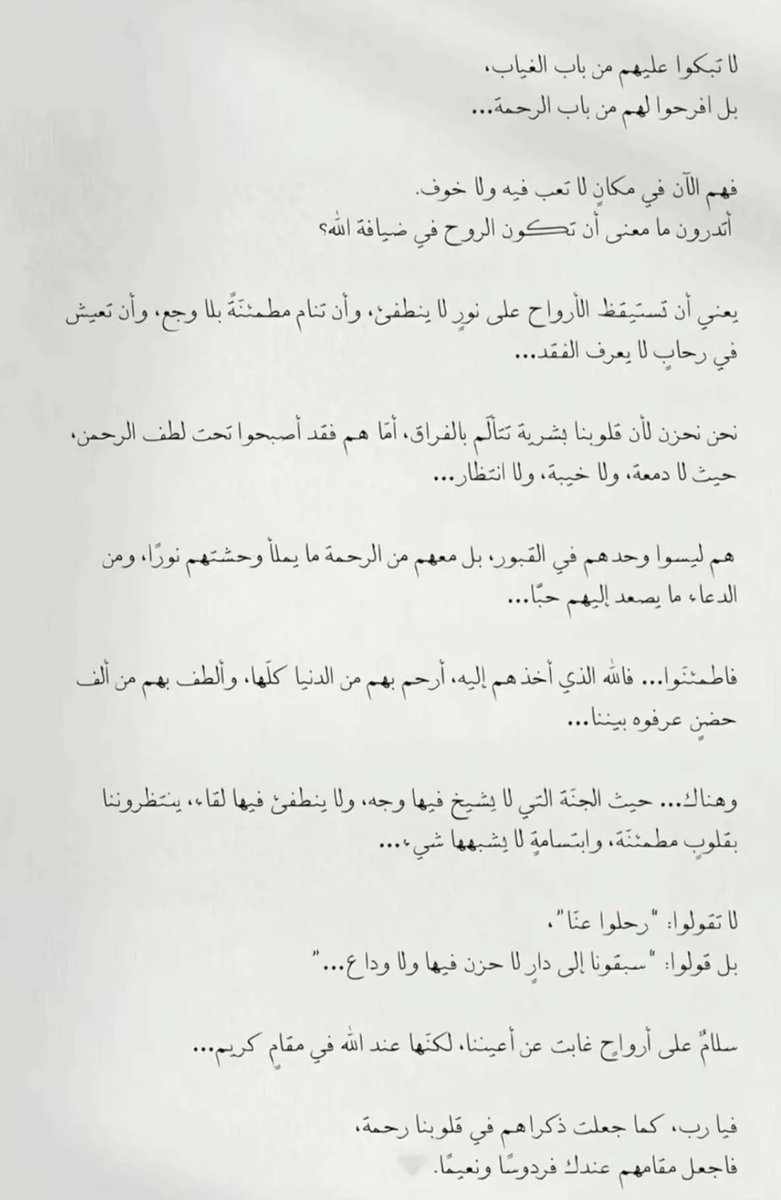 لا تبكوا عليهم من باب الغياب،
بل افرحوا لهم من باب الرحمة...
فهم الآن في مكانٍ لا تعب فيه ولا خوف.
أتدرون ما معنى أن تكون الروح في ضيافة الله؟
يعني أن تستيقظ الأرواح على نورٍ لا ينطفئ، وأن تنام مطمئنّةً بلا وجع، وأن تعيش
في رحابٍ لا يعرف الفقد...
نحن نحزن لأن قلوبنا بشرية تتألّم بالفراق، أمّا هم فقد أصبحوا تحت لطف الرحمن،
حيث لا دمعة، ولا خيبة، ولا انتظار...
هم ليسوا وحدهم في القبور، بل معهم من الرحمة ما يملأ وحشتهم نورًا، ومن
الدعاء ما يصعد إليهم حبًّا...
فاطمئنّوا... فالله الذي أخذهم إليه، أرحم بهم من الدنيا كلّها، وألطف بهم من ألف
حضنٍ عرفوه بيننا...
وهناك... حيث الجنّة التي لا يشيخ فيها وجه، ولا ينطفئ فيها لقاء، ينتظروننا
بقلوبٍ مطمئنّة، وابتسامةٍ لا يشبهها شيء...
لا تقولوا: "رحلوا عنّا"،
بل قولوا: "سبقونا إلى دارٍ لا حزن فيها ولا وداع..."
سلامٌ على أرواحٍ غابت عن أعيننا، لكنّها عند الله في مقامٍ كريم...
فيا رب، كما جعلت ذكراهم في قلوبنا رحمة،
فاجعل مقامهم عندك فردوسًا ونعيمًا.